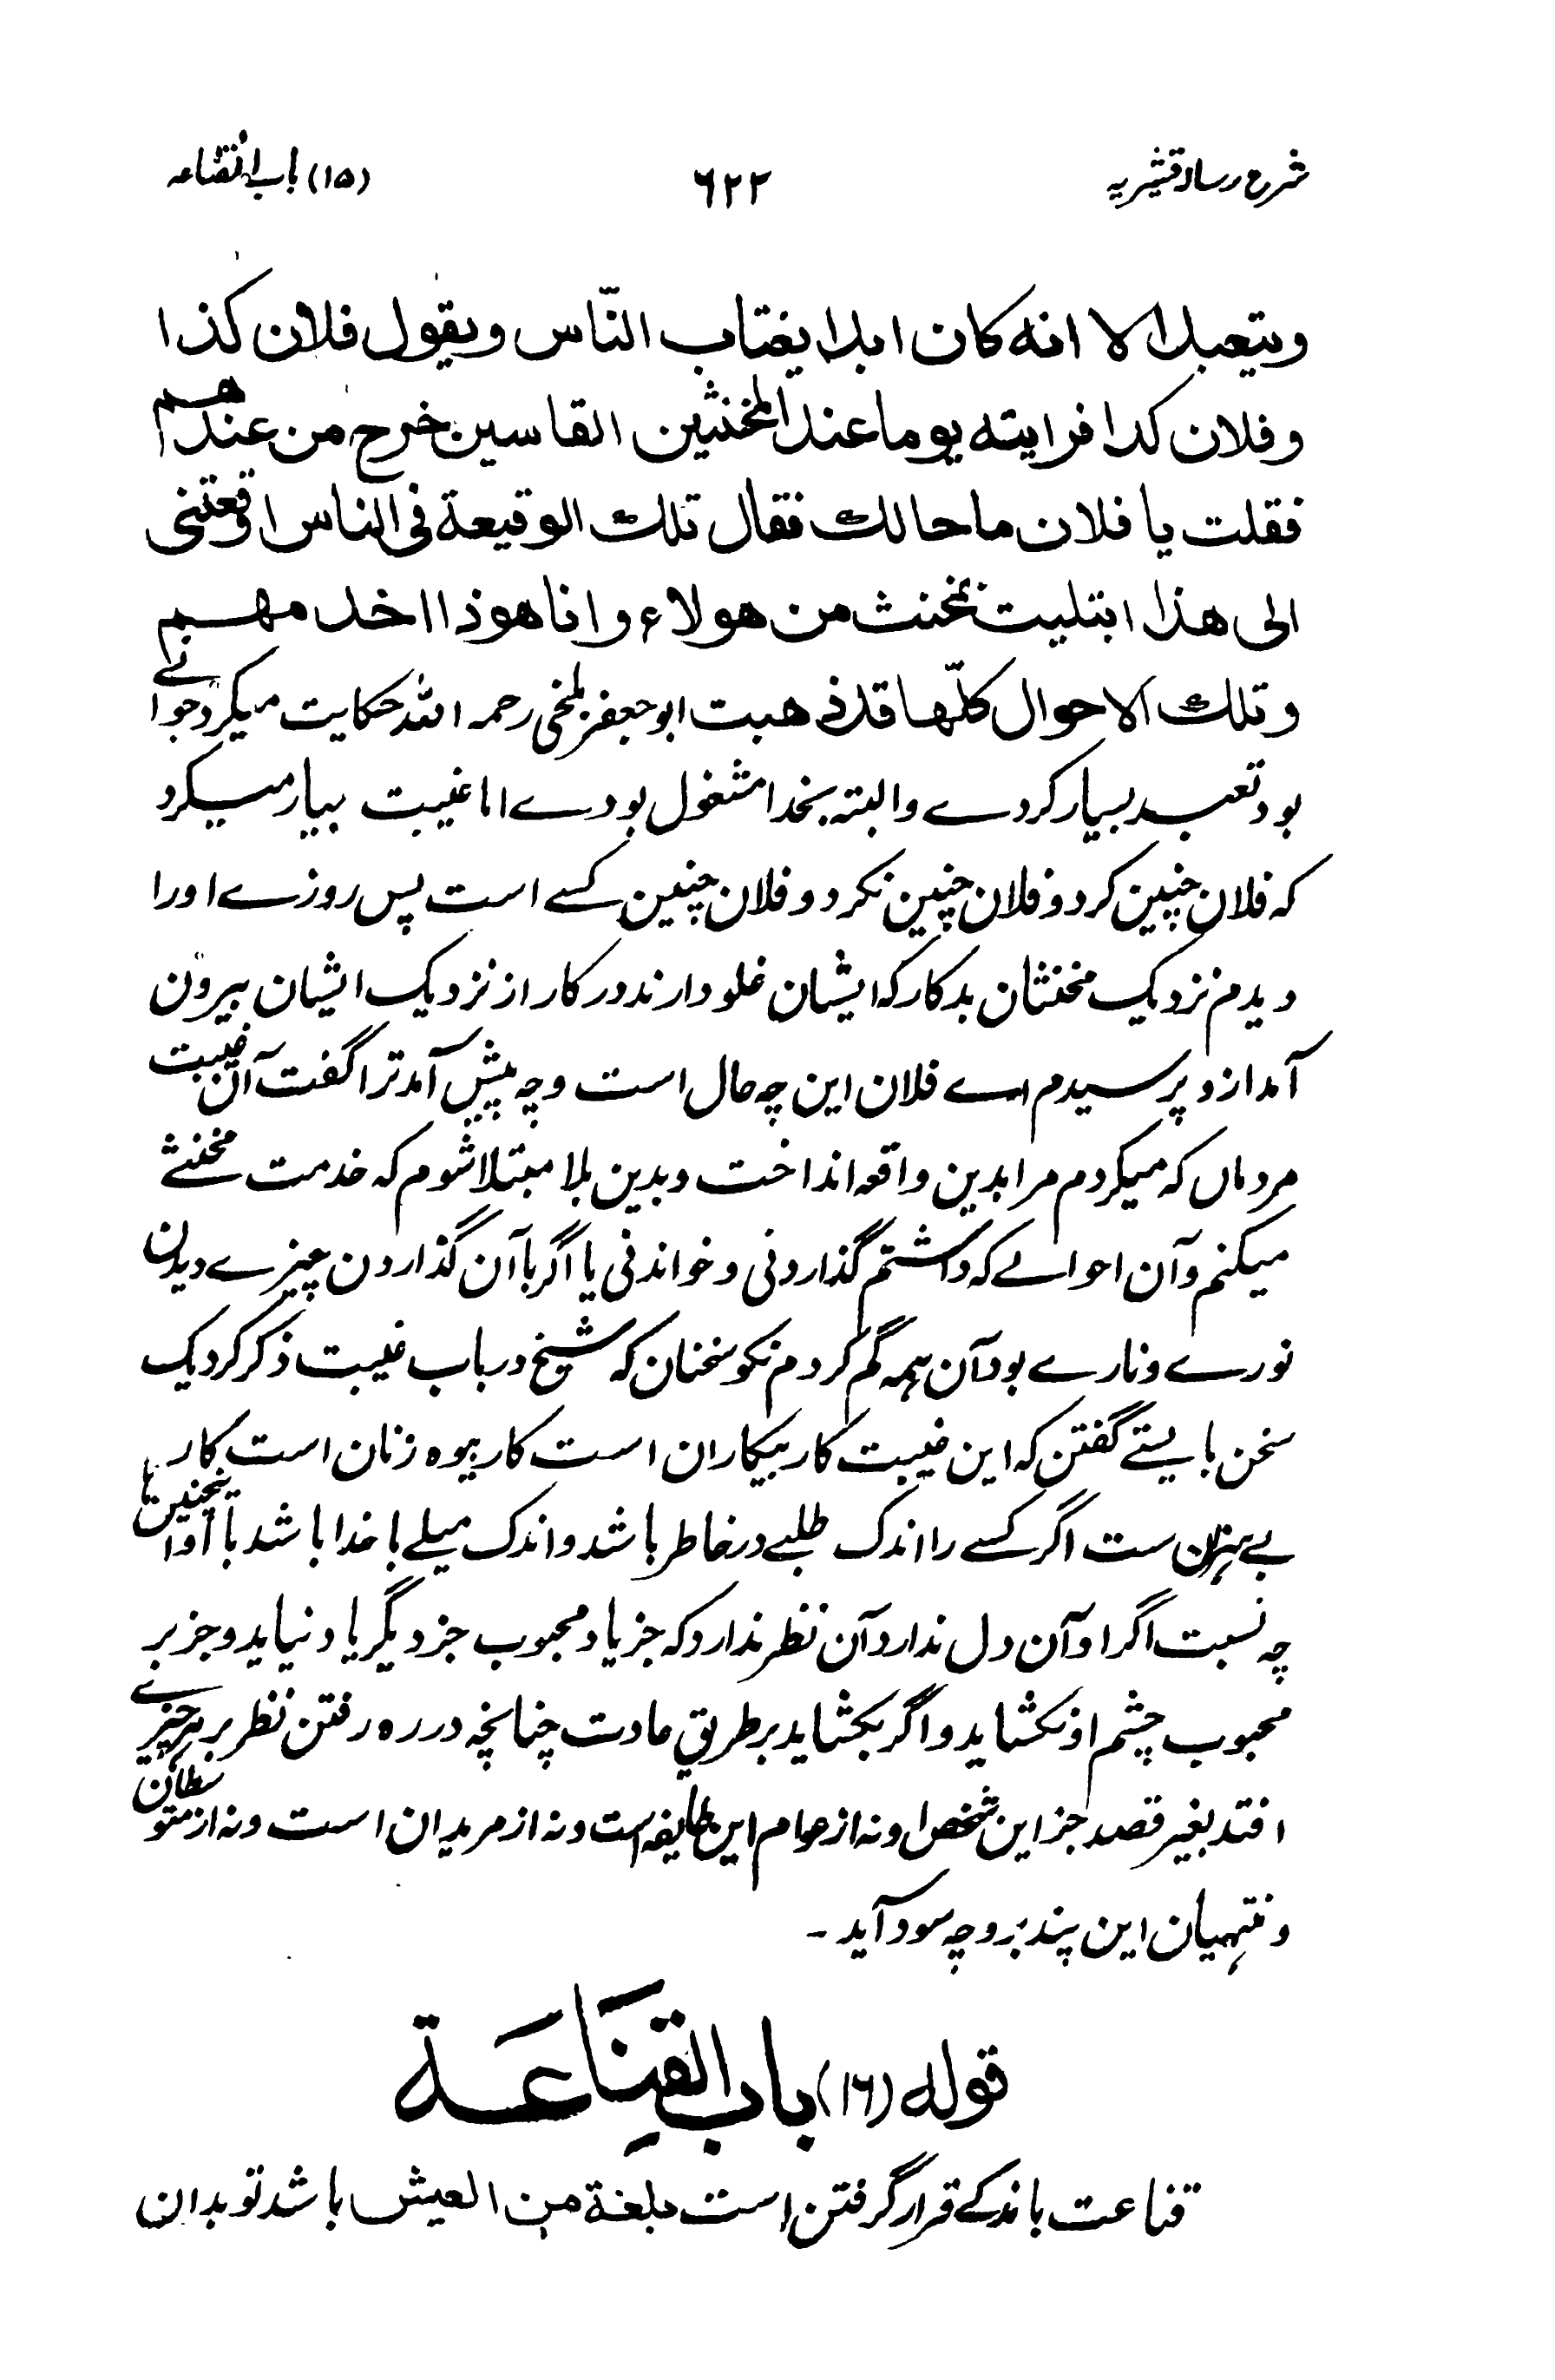 شرح رسالہ قشیریہ ۶۲۲ (۱۵) باب القناعہ
ویتعبد الا انه کان ابدا یغتاب النّاس ویقول فلان کذا
و فلان کدا فرایته یوما عند المخنثین القاسین خرج من عندهم
فقلت یا فلان ما حالك فقال تلك الوقیعة فی الناس اوقعتنی
الی هذا ابتلیت بمخنث من هولاء و انا هوذا اخد مهم
و تلك الاحوال کلّها قد ذهبت ابو جعفر بلخی رحمه اللہ حکایت میکرد جوانے
بود تعبد بسیار کردے و البتہ بخدا مشغول بودے اما غیبت بسیار میکرد
کہ فلان چنین کرد و فلان چنین نکرد و فلان چنین کسے است پس روزے اورا
دیدم نزدیک مخنثان بدکار کہ ایشان غلو دارند در کار از نزدیک ایشان بیرون
آمد ازو پرسیدم اے فلان این چہ حال است و چہ پیش آمد ترا گفت آن غیبت
مردماں کہ میکردم مرا بدین واقعہ انداخت و بدین بلا مبتلا شوم کہ خدمت مخنثے
میکنم و آن احوالے کہ داشتم گذاردنی و خواندنی یا اگر با آن گذاردن چیزے دیدن
نورے و نارے بود آن ہمہ گم کردم نکو سخنان کہ شیخ در باب غیبت ذکر کرد یک
سخن بایستے گفتن کہ این غیبت کار بیکاران است کار بیوہ زنان است کار
بے ہنران ست اگر کسے را اندک طلبے در خاطر باشد و اندک میلے با خدا باشد با او اینچنین ہا
چہ نسبت اگر او آن دل ندارد آن نظر ندارد کہ جز یاد محبوب جز دیگر یاد نیاید و جز بر
محبوب چشم او نکشاید و اگر بکشاید بر طریق عادت چنانچہ در رہ رفتن نظر بر ہر چیزے
افتد بغیر قصد جز این شخص او نہ از عوام این طایفہ است و نہ از مریدان است و نہ از متوسطان
و منتہیان این پند برو چہ سود آید ۔
قوله (۱۶) باب القِنَاعَة
قناعت باندکے قرار گرفتن است بلغة من العیش باشد تو بدان